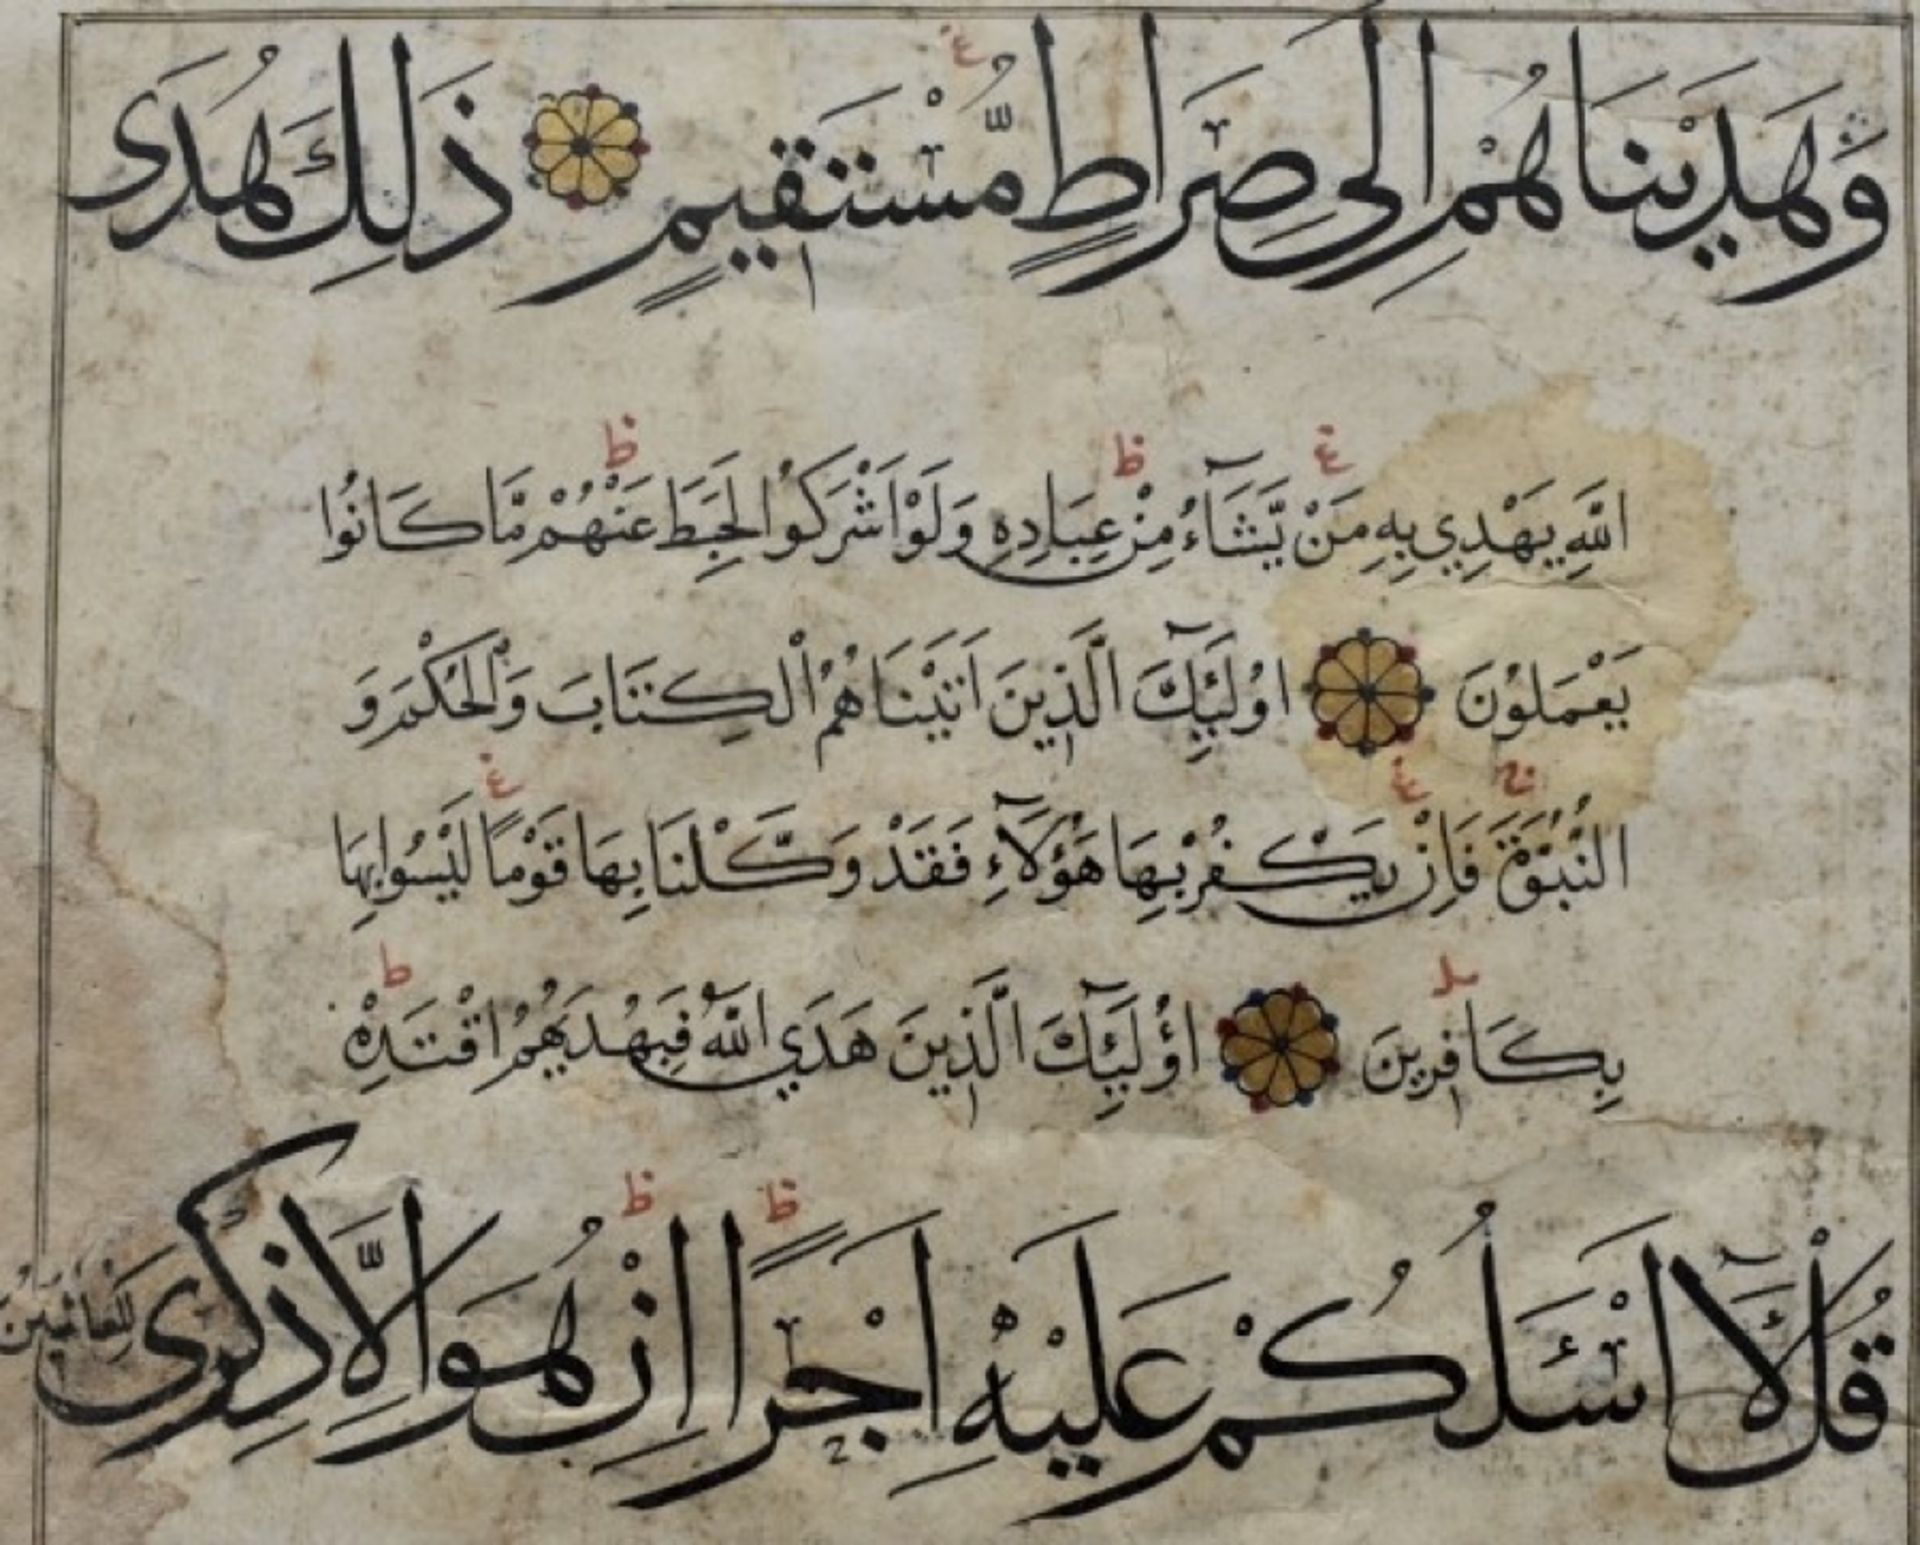 وَهَدَيْنَاهُمْ اِلَى صِرَاطٍ مُّسْتَقِيمٍ ذَلِكَ هُدَى
اللَّهِ يَهْدِي بِهِ مَنْ يَّشَآءُ مِنْ عِبَادِهِ وَلَوْ اَشْرَكُوا لَحَبِطَ عَنْهُمْ مَّا كَانُوا
يَعْمَلُوْنَ اُولَٓئِكَ الَّذِينَ اَتَيْنَاهُمُ الْكِتَابَ وَالْحُكْمَ وَ
النُّبُوَّةَ فَاِنْ يَكْفُرْ بِهَا هَؤُلَآءِ فَقَدْ وَكَّلْنَا بِهَا قَوْمًا لَيْسُوا بِهَا
بِكَافِرِينَ اُولَٓئِكَ الَّذِينَ هَدَي اللَّهُ فَبِهُدَيهُمُ اقْتَدِهْ
قُلْ لَآ اَسْئَلُكُمْ عَلَيْهِ اَجْرًا اِنْ هُوَ اِلَّا ذِكْرَى لِلْعَالَمِينَ